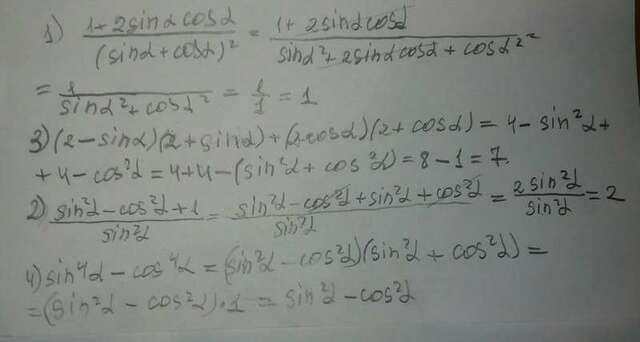 1) (1+2sinα cosα)/(sinα+cosα)² = (1+2sinα cosα)/(sinα²+2sinα cosα+cosα²) =
= 1/(sinα²+cosα²) = 1/1 = 1
3) (2-sinα)(2+sinα)+(2-cosα)(2+cosα) = 4-sin²α+
+4-cos²α = 4+4-(sin²α+cos²α) = 8-1 = 7.
2) (sin²α-cos²α+1)/sin²α = (sin²α-cos²α+sin²α+cos²α)/sin²α = 2sin²α/sin²α = 2
4) sin⁴α-cos⁴α = (sin²α-cos²α)(sin²α+cos²α) =
= (sin²α-cos²α)·1 = sin²α-cos²α